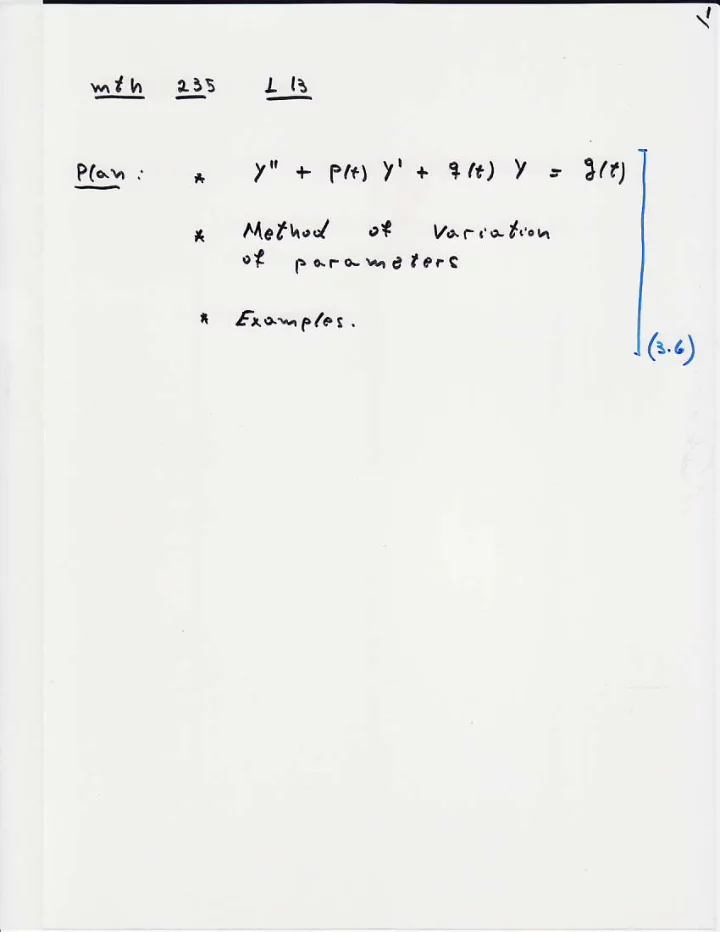 mth 235 L 13
Plan: * y'' + p(t) y' + q(t) y = g(t)
* Method of variation
of parameters
* Examples.
(3.6)